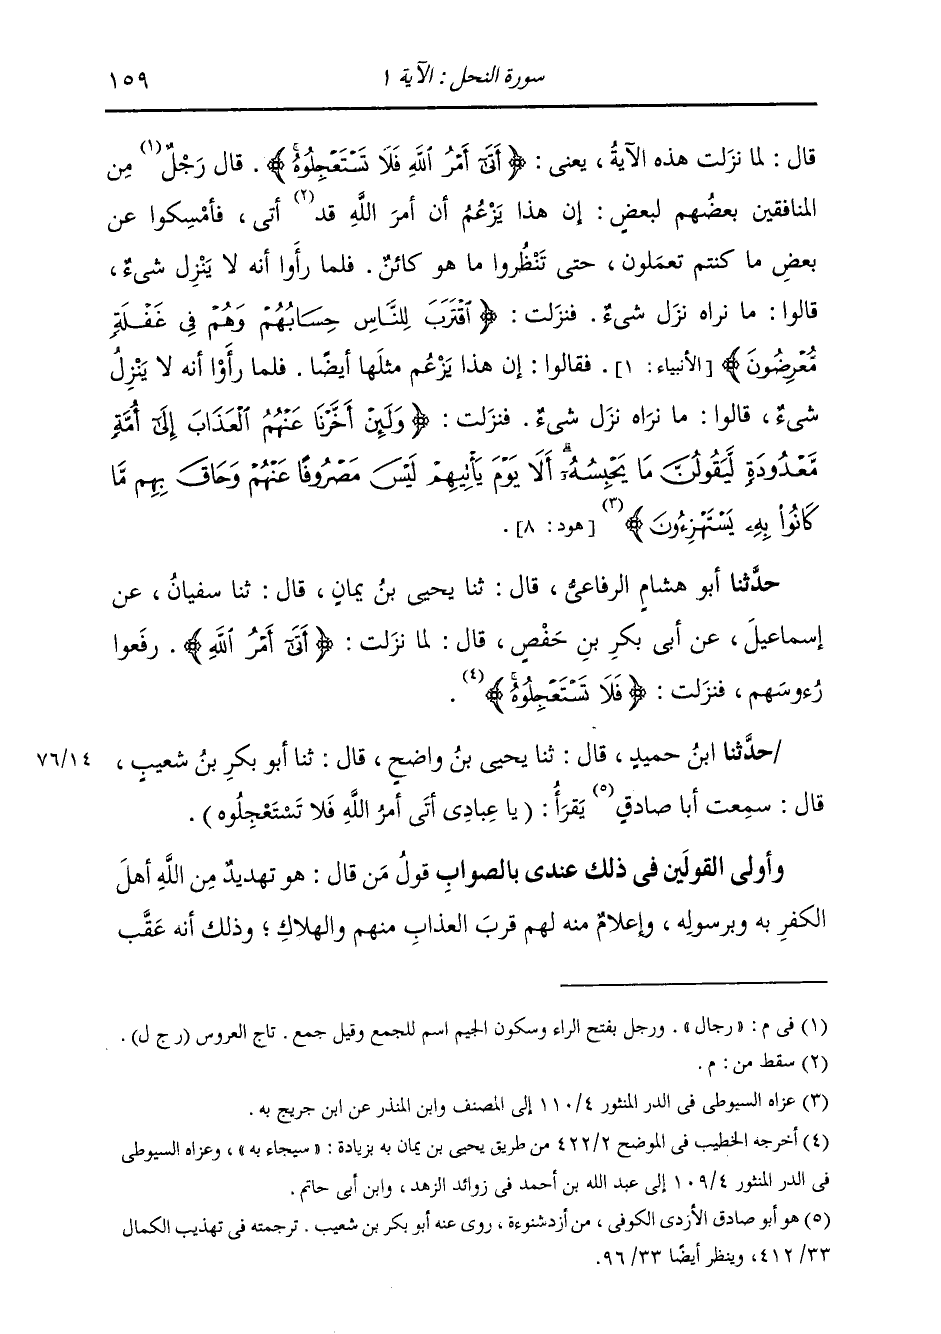 سورة النحل : الآية ١
١٥٩
قال : لما نزَلت هذه الآيةُ ، يعنى : ﴿ أَتَىٰٓ أَمْرُ ٱللَّهِ فَلَا تَسْتَعْجِلُوهُ ﴾ . قال رَجْلٌ(١) مِن
المنافقين بعضُهم لبعضٍ : إن هذا يَزْعُمُ أن أمرَ اللَّهِ قد(٢) أتى ، فأمْسِكوا عن
بعضِ ما كنتم تعمَلون ، حتى تَنْظُروا ما هو كائنٌ . فلما رأَوا أنه لا يَنْزِل شىءٌ ،
قالوا : ما نراه نزَل شىءٌ . فنزَلت : ﴿ ٱقْتَرَبَ لِلنَّاسِ حِسَابُهُمْ وَهُمْ فِى غَفْلَةٍ
مُّعْرِضُونَ ﴾ [الأنبياء: ١] . فقالوا : إن هذا يَزْعُم مثلَها أيضًا . فلما رأَوْا أنه لا يَنْزِلُ
شىءٌ ، قالوا : ما نرَاه نزَل شىءٌ . فنزلت : ﴿ وَلَئِنْ أَخَّرْنَا عَنْهُمُ ٱلْعَذَابَ إِلَىٰٓ أُمَّةٍ
مَّعْدُودَةٍ لَّيَقُولُنَّ مَا يَحْبِسُهُۥٓ ۗ أَلَا يَوْمَ يَأْتِيهِمْ لَيْسَ مَصْرُوفًا عَنْهُمْ وَحَاقَ بِهِم مَّا
كَانُوا۟ بِهِۦ يَسْتَهْزِءُونَ ﴾(٣) [هود: ٨] .
حدَّثنا أبو هشامٍ الرفاعىُّ ، قال : ثنا يحيى بنُ يمانٍ ، قال : ثنا سفيانُ ، عن
إسماعيلَ ، عن أبى بكرِ بنِ حَفْصٍ ، قال : لما نزَلت : ﴿ أَتَىٰٓ أَمْرُ ٱللَّهِ ﴾ . رفَعوا
رُءوسَهم ، فنزَلت : ﴿ فَلَا تَسْتَعْجِلُوهُ ﴾(٤) .
/حدَّثنا ابنُ حميدٍ ، قال : ثنا يحيى بنُ واضحٍ ، قال : ثنا أبو بكرِ بنُ شعيبٍ ،
٧٦/١٤
قال : سمِعت أبا صادقٍ(٥) يَقرَأُ : ( يا عِبادِى أتَى أمرُ اللَّهِ فَلا تَسْتَعْجِلُوه ) .
وأولى القولَين فى ذلك عندى بالصوابِ قولُ مَن قال : هو تهديدٌ مِن اللَّهِ أهلَ
الكفرِ به وبرسولِه ، وإعلامٌ منه لهم قربَ العذابِ منهم والهلاكِ ؛ وذلك أنه عَقَّب
(١) فى م : « رجال » . ورجل بفتح الراء وسكون الجيم اسم للجمع وقيل جمع . تاج العروس (ر ج ل) .
(٢) سقط من : م .
(٣) عزاه السيوطى فى الدر المنثور ١١٠/٤ إلى المصنف وابن المنذر عن ابن جريج به .
(٤) أخرجه الخطيب فى الموضح ٤٢٢/٢ من طريق يحيى بن يمان به بزيادة : « سيجاء به » ، وعزاه السيوطى
فى الدر المنثور ١٠٩/٤ إلى عبد الله بن أحمد فى زوائد الزهد ، وابن أبى حاتم .
(٥) هو أبو صادق الأزدى الكوفى ، من أزدشنوءة ، روى عنه أبو بكر بن شعيب . ترجمته فى تهذيب الكمال
٤١٢/٣٣ ، وينظر أيضًا ٩٦/٣٣ .